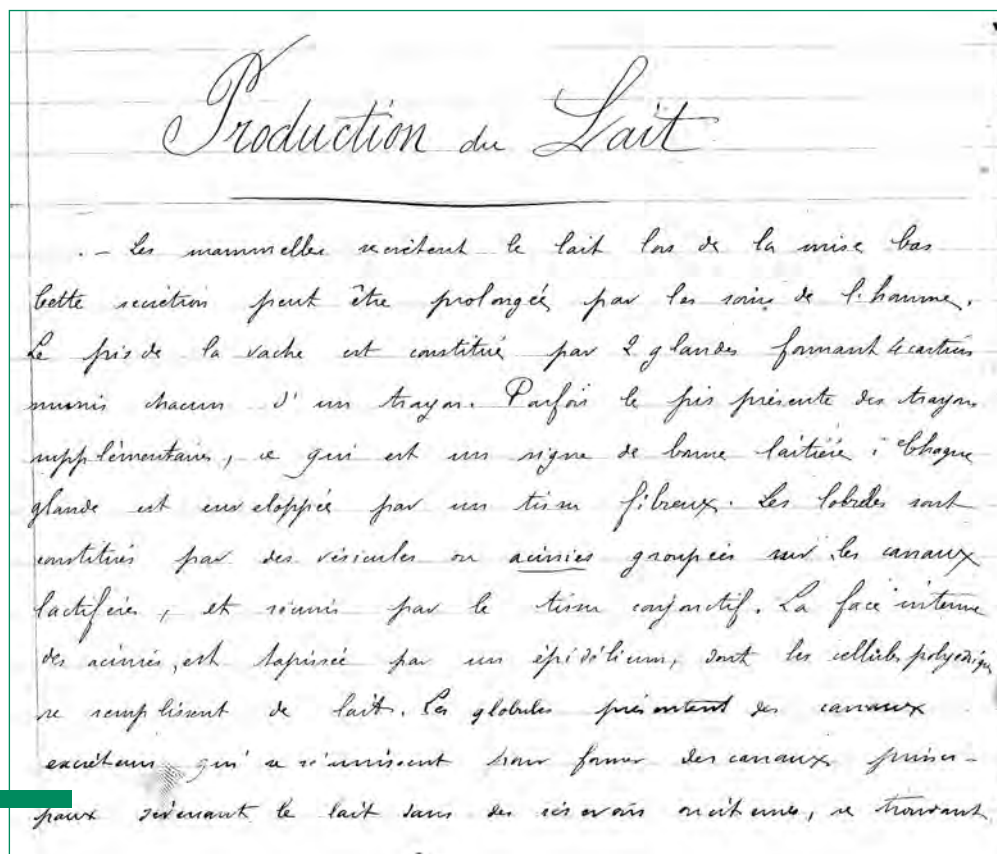 Production du Lait
. - Les mammelles secrètent le lait lors de la mise bas
Cette secrétion peut être prolongée par les soins de l'homme.
Le pis de la vache est constitué par 2 glandes formant 4 cartiers
munis chacun d'un trayon. Parfois le pis présente des trayons
supplémentaires, ce qui est un signe de bonne laitière. Chaque
glande est enveloppée par un tissu fibreux. Les lobules sont
constitués par des vésicules ou acinies groupées sur les canaux
lactifères, et réunis par le tissu conjonctif. La face interne
des acinies, est tapissée par un épidélium, dont les cellules polyédriques
se remplissent de lait. Les globules présentent des canaux
excréteurs qui se réunissent pour former des canaux princi-
paux le lait dans des se trouvant